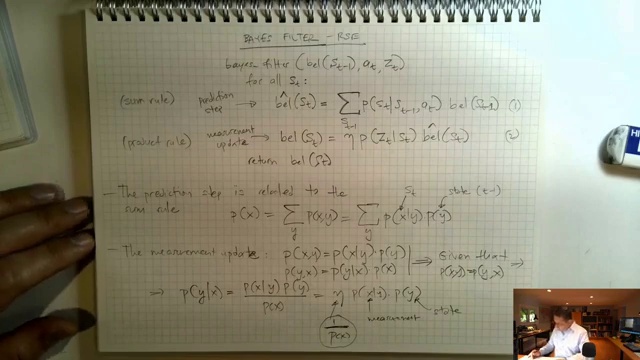 BAYES FILTER - RSE
bayes filter (bel(S_{t-1}), a_t, Z_t)
for all S_t:
(sum rule) prediction step → bel̂(S_t) = ∑_{S_{t-1}} p(S_t|S_{t-1}, a_t) bel(S_{t-1}) (1)
(product rule) measurement update → bel(S_t) = η p(Z_t|S_t) bel̂(S_t) (2)
return bel(S_t)
- The prediction step is related to the
sum rule
S_t state (t-1)
p(x) = ∑_y p(x,y) = ∑_y p(x|y) p(y)
- The measurement update: p(x,y) = p(x|y) · p(y)
p(y,x) = p(y|x) p(x)
⟹ Given that p(x,y) = p(y,x) ⟹
⟹ p(y|x) = p(x|y) p(y) / p(x) = η p(x|y) · p(y)
measurement state
1/p(x)
HI